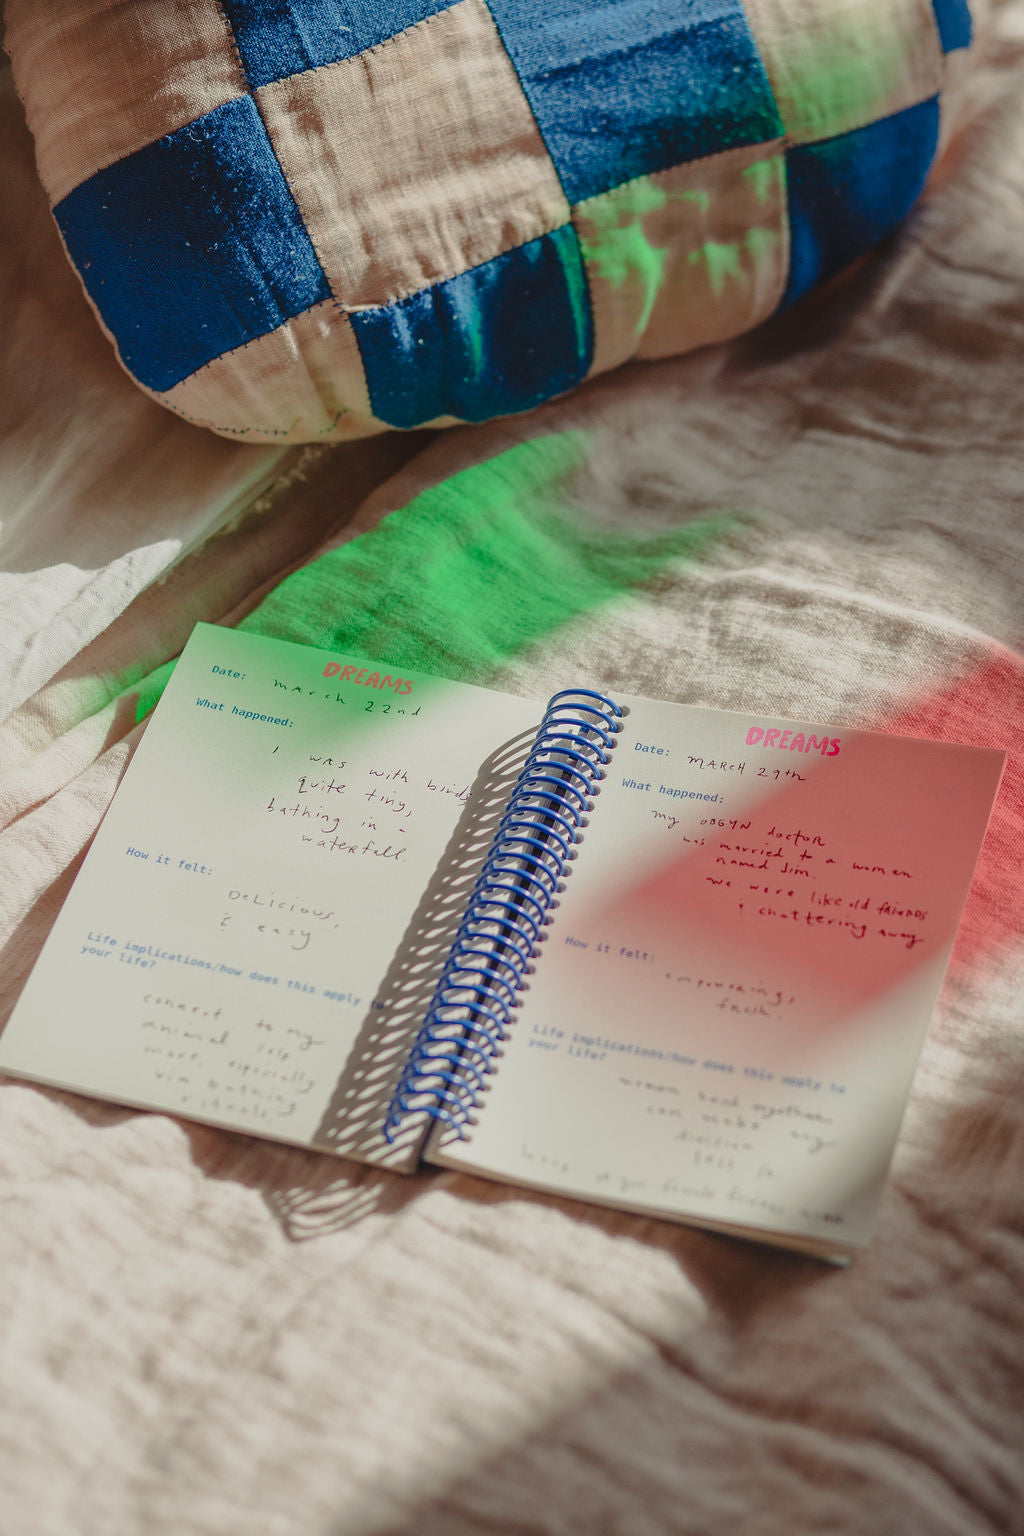 DREAMS
Date: march 22nd
What happened:
I was with birds,
quite tiny,
bathing in a
waterfall.
How it felt:
Delicious,
& easy
Life implications/how does this apply to
your life?
connect to my
animal self
more, especially
via bathing
rituals.
DREAMS
Date: MARCH 29th
What happened:
my OBGYN doctor
was married to a woman
named Jim.
we were like old friends
& chattering away
How it felt:
empowering,
fresh.
Life implications/how does this apply to
your life?
women together
can make any
division